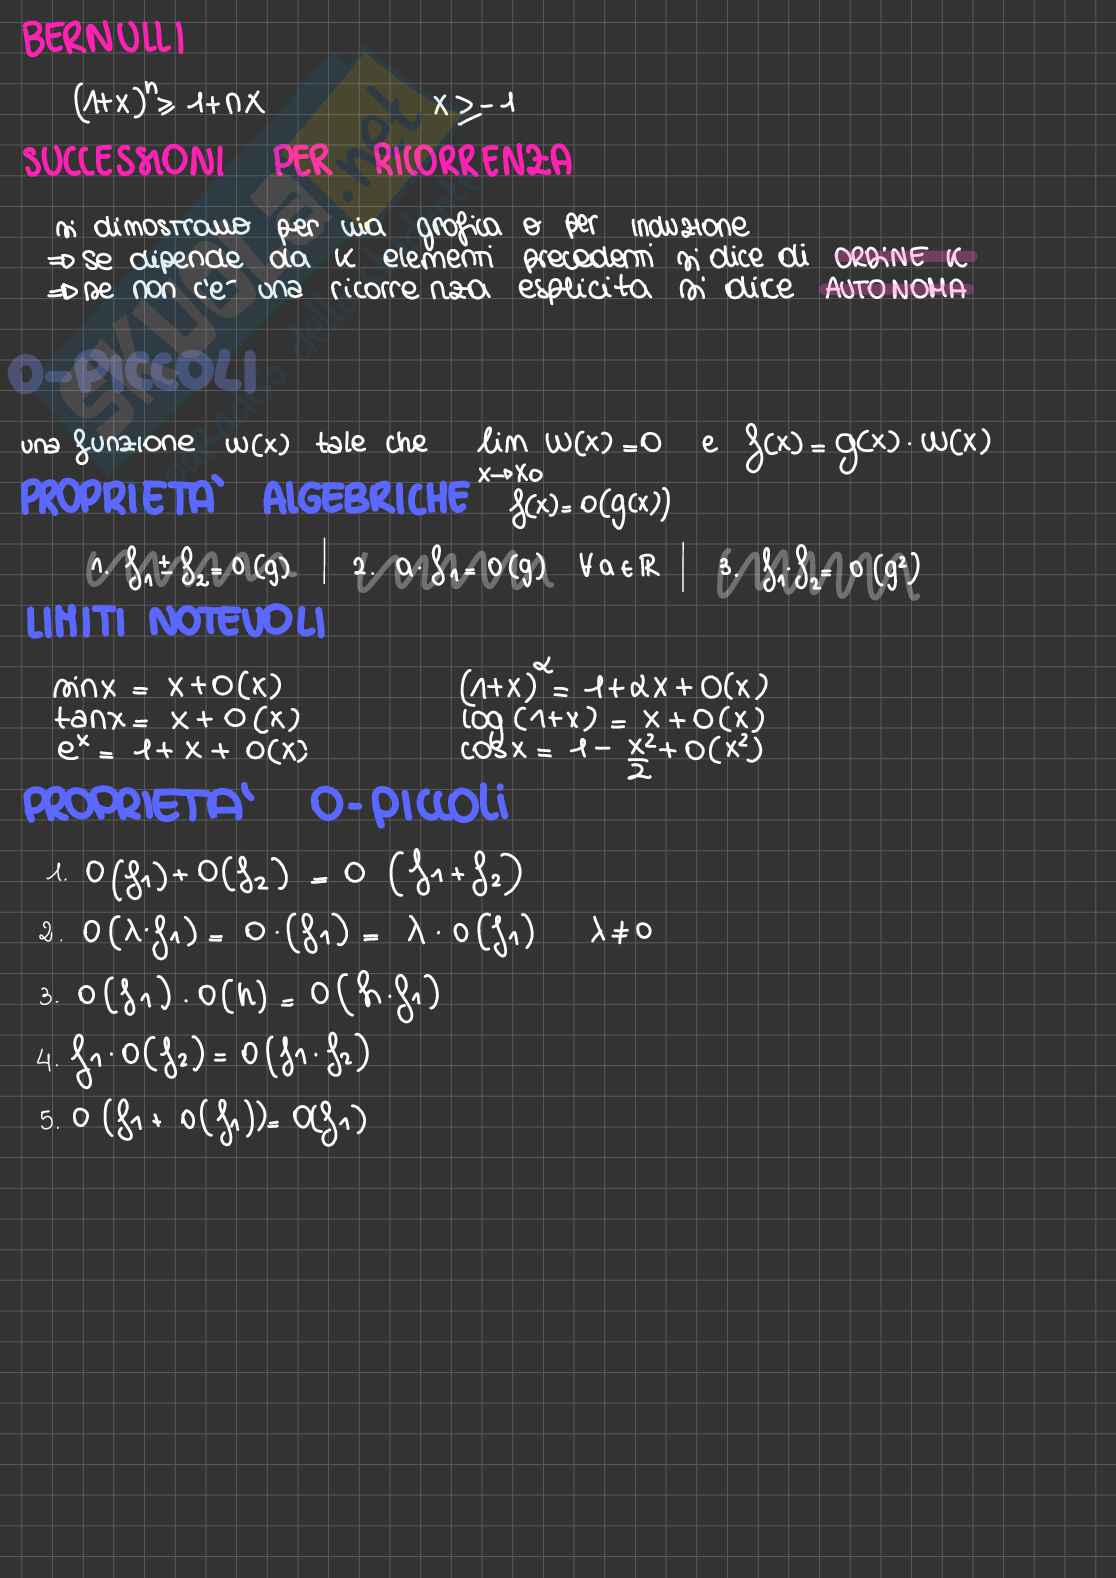 BERNULLI
(1+x)ⁿ ≥ 1+nx x ≥ -1
SUCCESSIONI PER RICORRENZA
si dimostrano per via grafica o per induzione
⇒ se dipende da k elementi precedenti si dice di ORDINE K
⇒ se non c'e' una ricorrenza esplicita si dice AUTONOMA
O-PICCOLI
una funzione w(x) tale che lim w(x) = 0 e f(x) = g(x) · w(x)
x→x₀
PROPRIETA' ALGEBRICHE f(x) = o(g(x))
1. f₁ ± f₂ = o(g) | 2. a·f₁ = o(g) ∀a∈ℝ | 3. f₁·f₂ = o(g²)
LIMITI NOTEVOLI
sinx = x+o(x) (1+x)^α = 1+αx+o(x)
tanx = x+o(x) log(1+x) = x+o(x)
eˣ = 1+x+o(x) cosx = 1 - x²/2 + o(x²)
PROPRIETA' O-PICCOLI
1. o(f₁)+o(f₂) = o (f₁+f₂)
2. o(λ·f₁) = o·(f₁) = λ·o(f₁) λ≠0
3. o(f₁)·o(h) = o(h·f₁)
4. f₁·o(f₂) = o(f₁·f₂)
5. o(f₁+o(f₁)) = o(f₁)
SKUOLA.net